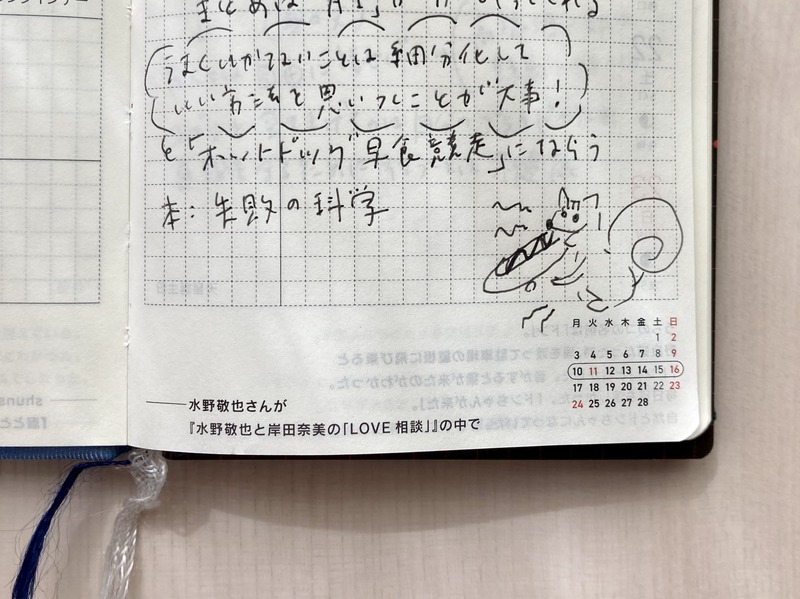 うまくいかないことは細分化して
いい方法を思いつくことが大事！
を「ホットドッグ早食競走」にならう
本：失敗の科学
月 火 水 木 金 土 日
1 2
3 4 5 6 7 8 9
10 11 12 13 14 15 16
17 18 19 20 21 22 23
24 25 26 27 28
——水野敬也さんが
『水野敬也と岸田奈美の「LOVE 相談」』の中で